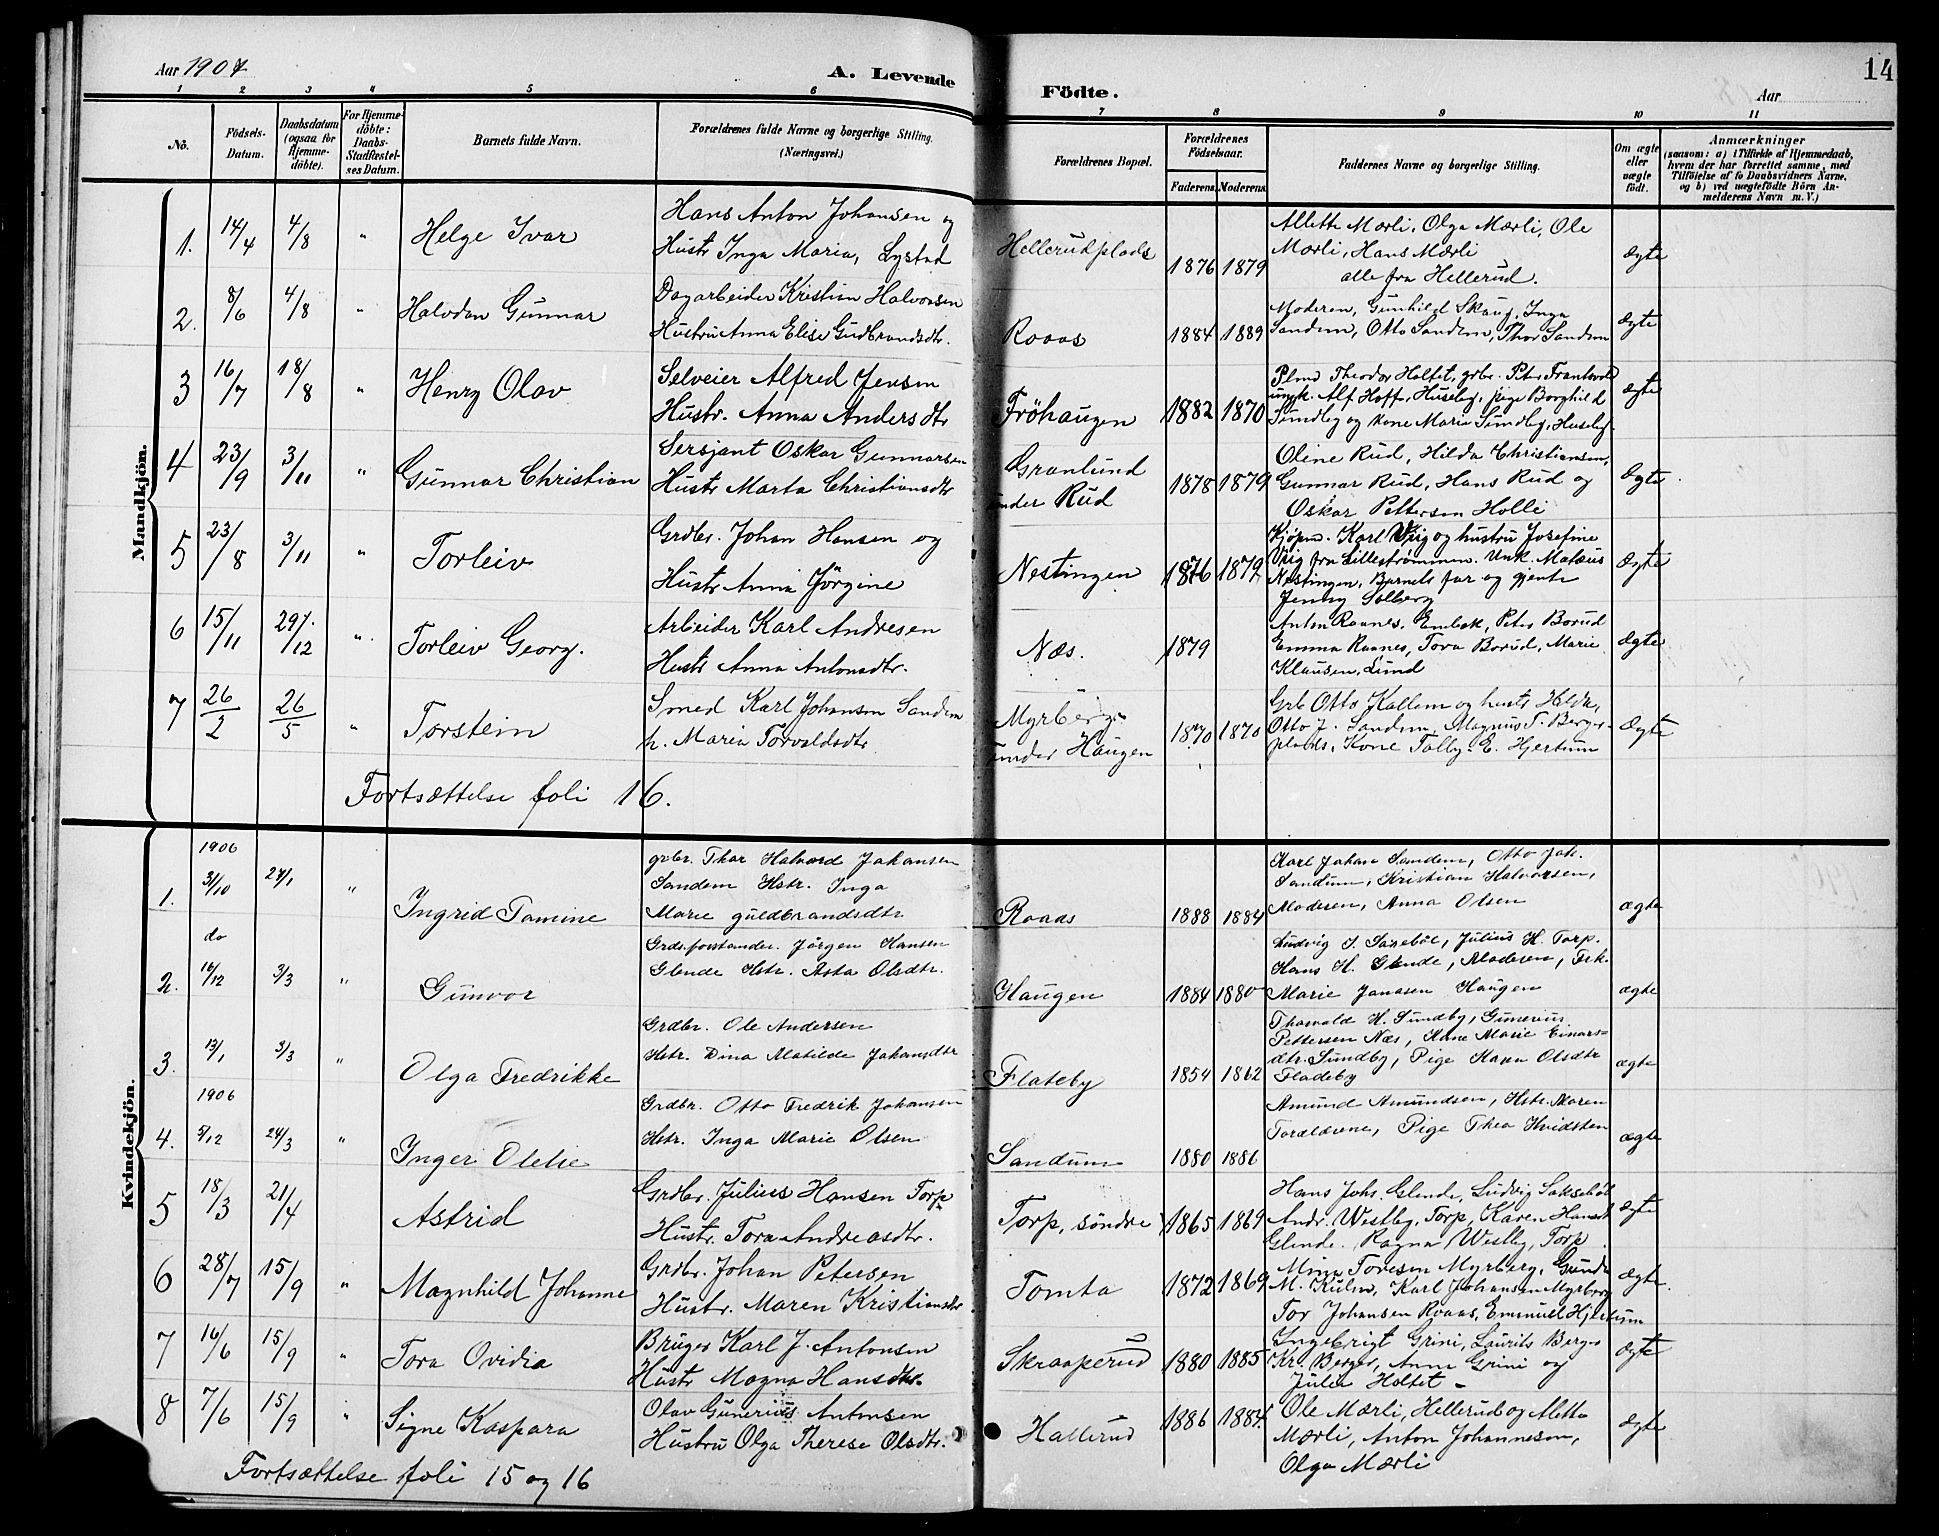 Aar 1907
A. Levende
Födte.
Aar
14
1 2 3 4 5 6 7 8 9 10 11
Nö.
Födsels-
Datum.
Daabsdatum
(ogsaa for
Hjemme-
döbte).
For Hjemme-
döbte:
Daabs-
Stadfæstel-
ses Datum.
Barnets fulde Navn.
Forældrenes fulde Navne og borgerlige Stilling.
(Næringsvei.)
Forældrenes Bopæl.
Forældrenes
Födselsaar.
Faderens. Moderens.
Faddernes Navne og borgerlige Stilling.
Om ægte
eller
uægte
födt.
Anmærkninger
(saasom: a) i Tilfælde af Hjemmedaab,
hvem der har forrettet samme, med
Tilföielse af to Daabsvidners Navne,
og b) ved uægtefödte Börn An-
melderens Navn m. V.)
Mandkjön.
1. 14/4 4/8 " Helge Ivar
Hans Anton Johansen og
Hustr Inga Maria, Lystad
Hellerudplads 1876 1879
Allette Mærli, Olga Mærli, Ole
Mærli, Hans Mærli
alle fra Hellerud.
Ægte
2. 8/6 4/8 " Halvdan Gunnar
Dagarbeider Kristian Halvorsen
Hustru Anna Elise Gudbrandsdtr.
Roaas 1884 1889
Moderen, Gunhild Skaug, Inga
Sandem, Otto Sandem, Thor Sandem
Ægte
3 16/7 18/8 " Henry Olav
Selveier Alfred Jensen
Hustr. Anna Andersdtr
Fröhaugen 1882 1870
Theodor Holtet, grbr. Peter
ungk. Alf Hoff, Huseby, pige Borghild
Sundby og kone Maria Sundby, Huseby
Ægte
4 23/9 3/11 " Gunnar Christian
Sersjant Oskar Gunnarsen
Hustr Marta Christiansdtr
Granlund
under Rud
1878 1879
Oline Rud, Hilda Christiansen,
Gunnar Rud, Hans Rud og
Oskar Pettersen Holli
Ægte
5 23/8 3/11 " Torleiv
Grdbr. Johan Hansen og
Hustr Anna Jörgine
Nestingen 1876 1879
Kjøpm. Karl og hustru Josefine
fra Lillestrømmen. Unk. Matæus
Nestingen, Barnets far og gjente
Jenny Solberg
Ægte
6 15/11 29/12 " Torleiv Georg.
Arbeider Karl Andresen
Hustr Anna Antonsdtr.
Næs. 1879
Anton Raanes, Peter Borud
Emma Raanes, Tora Borud, Marie
Klausen, Lund
Ægte
7 26/2 26/5 " Torstein
Smed Karl Johansen Sandem
h. Maria Torvaldsdtr
Myrberg
under Haugen
1870 1870
Grb Otto Kallem og hustr Hilda,
Otto J. Sandem, Magnus T. Berger-
plads, Kone Talby. E. Hjertum
Ægte
Fortsættelse foli 16.
Kvindekjön.
1. 1906 31/10 27/1 " Ingrid Tomine
grbr. Thor Halvord Johansen
Sandem Hstr. Inga
Marie guldbrandsdtr
Roaas 1888 1884
Karl Johan Sandem, Otto Joh.
Sandum, Kristian Halvorsen,
Moderen, Anna Olsen
ægte
2. do 16/12 3/3 " Gunvor
Grds.forstander. Jörgen Hansen
Glende Hstr. Asta Olsdtr.
Haugen 1884 1880
Ludvig S. Saxeböl, Julius H. Torp.
Hans H. Glende, Moderen, Frk.
Marie Jonasen Haugen
ægte
3. 13/1 3/3 " Olga Fredrikke
Grdbr. Ole Andersen
Hstr. Dina Matilde Johansdtr
Flateby 1854 1862
Thorvald H. Sundby, Gunerius
Pettersen Næs, Kone Marie Einars-
dtr. Sundby, Pige Maren Olsdtr
Fladeby
ægte
4. 1906 5/12 24/3 " Inger Olelie
Grdbr. Otto Fredrik Johansen
Hstr. Inga Marie Olsen
Sandum 1880 1886
Amund Amundsen, Hstr. Maren
Forældrene, Pige Thea Kvidsten
ægte
5 18/3 21/4 Astrid
Grdbr. Julius Hansen Torp
Hustr. Tora Andreasdtr.
Torp, söndre 1865 1869
Hans Johs. Glende, Ludvig Saksebøl
Andr. Westby, Torp, Karen Hansdt
Glende. Ragna Westby, Torp
Ægte
6 28/7 15/9 " Magnhild Johanne
Grdbr. Johan Petersen
Hustr. Maren Kristiansdtr
Tomta 1872 1869
Mina Toresen Myrberg, Gunda
M. Kulm, Karl Johansen Myrberg
Tor Johansen Roaas, Emmuel Hjertum
Ægte.
7 16/6 15/9 " Tora Ovidia
Bruger Karl J. Antonsen
Hustr Magna Hansdtr.
Skraaperud 1880 1885
Ingebrigt Grini, Laurits Berger
Kr. Berger, Anne Grini og
Julie Holtet -
Ægte
8 7/6 15/9 " Signe Kaspara
Olav Gunerius Antonsen
Hustru Olga Therese Olsdtr.
Hallerud 1886 1884
Ole Mærli, Hellerud og Aletta
Mærli, Anton Johannesen,
Olga Mærli
Ægte
Fortsættelse foli 15 og 16